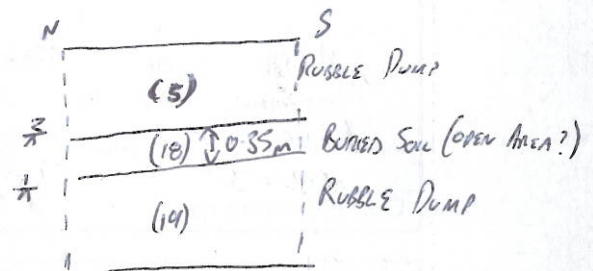 N S
(5) Rubble Dump
(18) 0.35m Buried Soil (open Area?)
(19) Rubble Dump